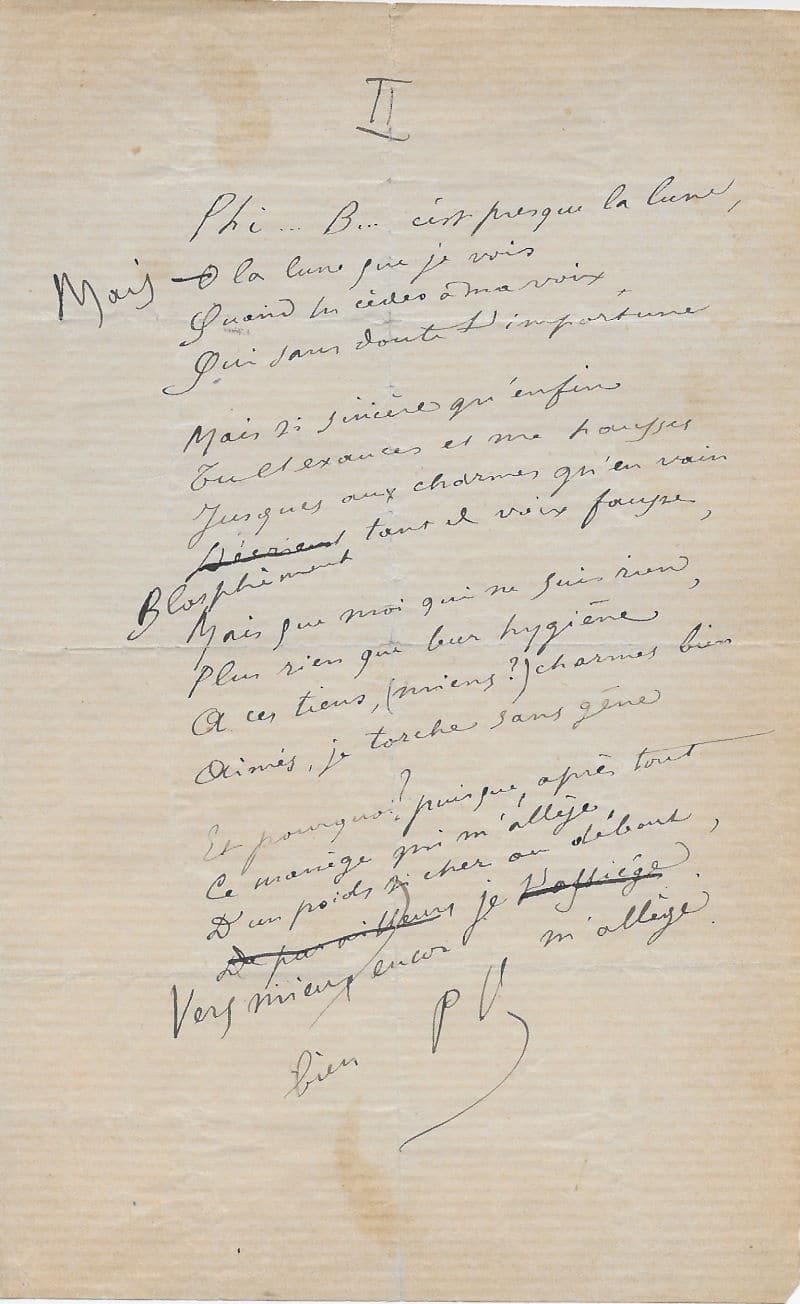 II
Phi ... B... c'est presque la lune,
Mais O la lune que je vois
Quand tu cèdes à ma voix,
Qui sans doute t'importune
Mais si sincère qu'enfin
Tu l'exauces et me hausses
Jusques aux charmes qu'en vain
Décrient tant de voix fausses,
Blasphèment
Mais que moi qui ne suis rien,
Plus rien que leur hygiène,
A ces tiens, (miens?) charmes bien
Aimés, je torche sans gêne
Et pourquoi? puisque, après tout
Ce manège qui m'allège,
D'un poids si cher au débout,
De par ailleurs je t'assiège.
Vers mieux encor m'allège.
bien
P V